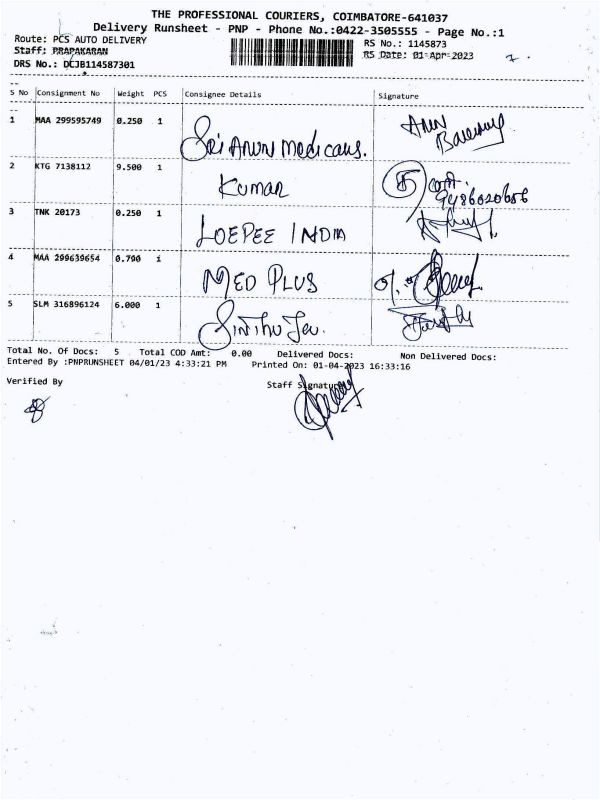 THE PROFESSIONAL COURIERS, COIMBATORE-641037
Delivery Runsheet - PNP - Phone No.:0422-3505555 - Page No.:1
Route: PCS AUTO DELIVERY
RS No.: 1145873
Staff: PRAPAKARAN
RS Date: 01-Apr-2023
DRS No.: DCJB114587301
S No Consignment No Weight PCS Consignee Details Signature
1 MAA 299595749 0.250 1 Sri Arun Medicals.
2 KTG 7138112 9.500 1 Kumar 9486020606
3 TNK 20173 0.250 1 LOEPEE INDIA
4 MAA 299639654 0.790 1 MED PLUS
5 SLM 316896124 6.000 1
Total No. Of Docs: 5 Total COD Amt: 0.00 Delivered Docs: Non Delivered Docs:
Entered By :PNPRUNSHEET 04/01/23 4:33:21 PM Printed On: 01-04-2023 16:33:16
Verified By Staff Signature